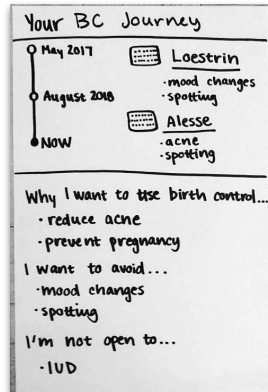 Your BC Journey
May 2017
Loestrin
·mood changes
·spotting
August 2018
Alesse
·acne
·spotting
NOW
Why I want to use birth control...
·reduce acne
·prevent pregnancy
I want to avoid...
·mood changes
·spotting
I'm not open to...
·IUD